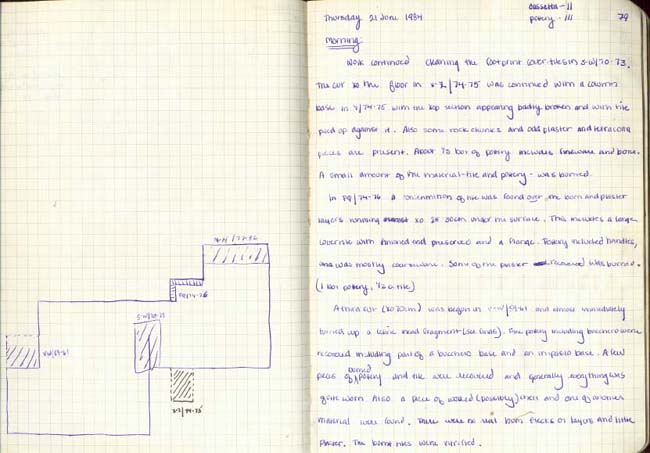 M-N / 72-76
PQ/74-76
S-W/70-73
V-W/59-61
X-Z / 74-75
cassetta - II
Thursday 21 June 1984
pottery - III
79
Morning:
Work continued cleaning the footprint cover-tiles in S-W/70-73.
The cut to the floor in X-Z/74-75 was continued with a column
base in Y/74-75 with the top section appearing badly broken and with tile
piled up against it. Also some rock chunks and odd plaster and terracotta
pieces are present. About ½ box of pottery includes fineware and bone.
A small amount of the material - tile and pottery - was burned.
In PQ/74-76 a concentration of tile was found over the burn and plaster
layers running to 25-30cm under the surface. This includes a large
covertile with finished end preserved and a flange. Pottery included handles,
and was mostly coarseware. Some of the plaster recovered was burned.
(1 box pottery, ½ c. tile)
A third cut (to 20cm) was begun in V-W/59-61 and almost immediately
turned up a feline head fragment (see finds). Fine pottery including bucchero were
recovered including part of a bucchero base and an impasto base. A few
pieces of burned pottery and tile were recovered and generally everything was
quite worn. Also a piece of worked (possibly) shell and one of another
material were found. There were no real burn flecks or layers and little
plaster. The burnt tiles were vitrified.